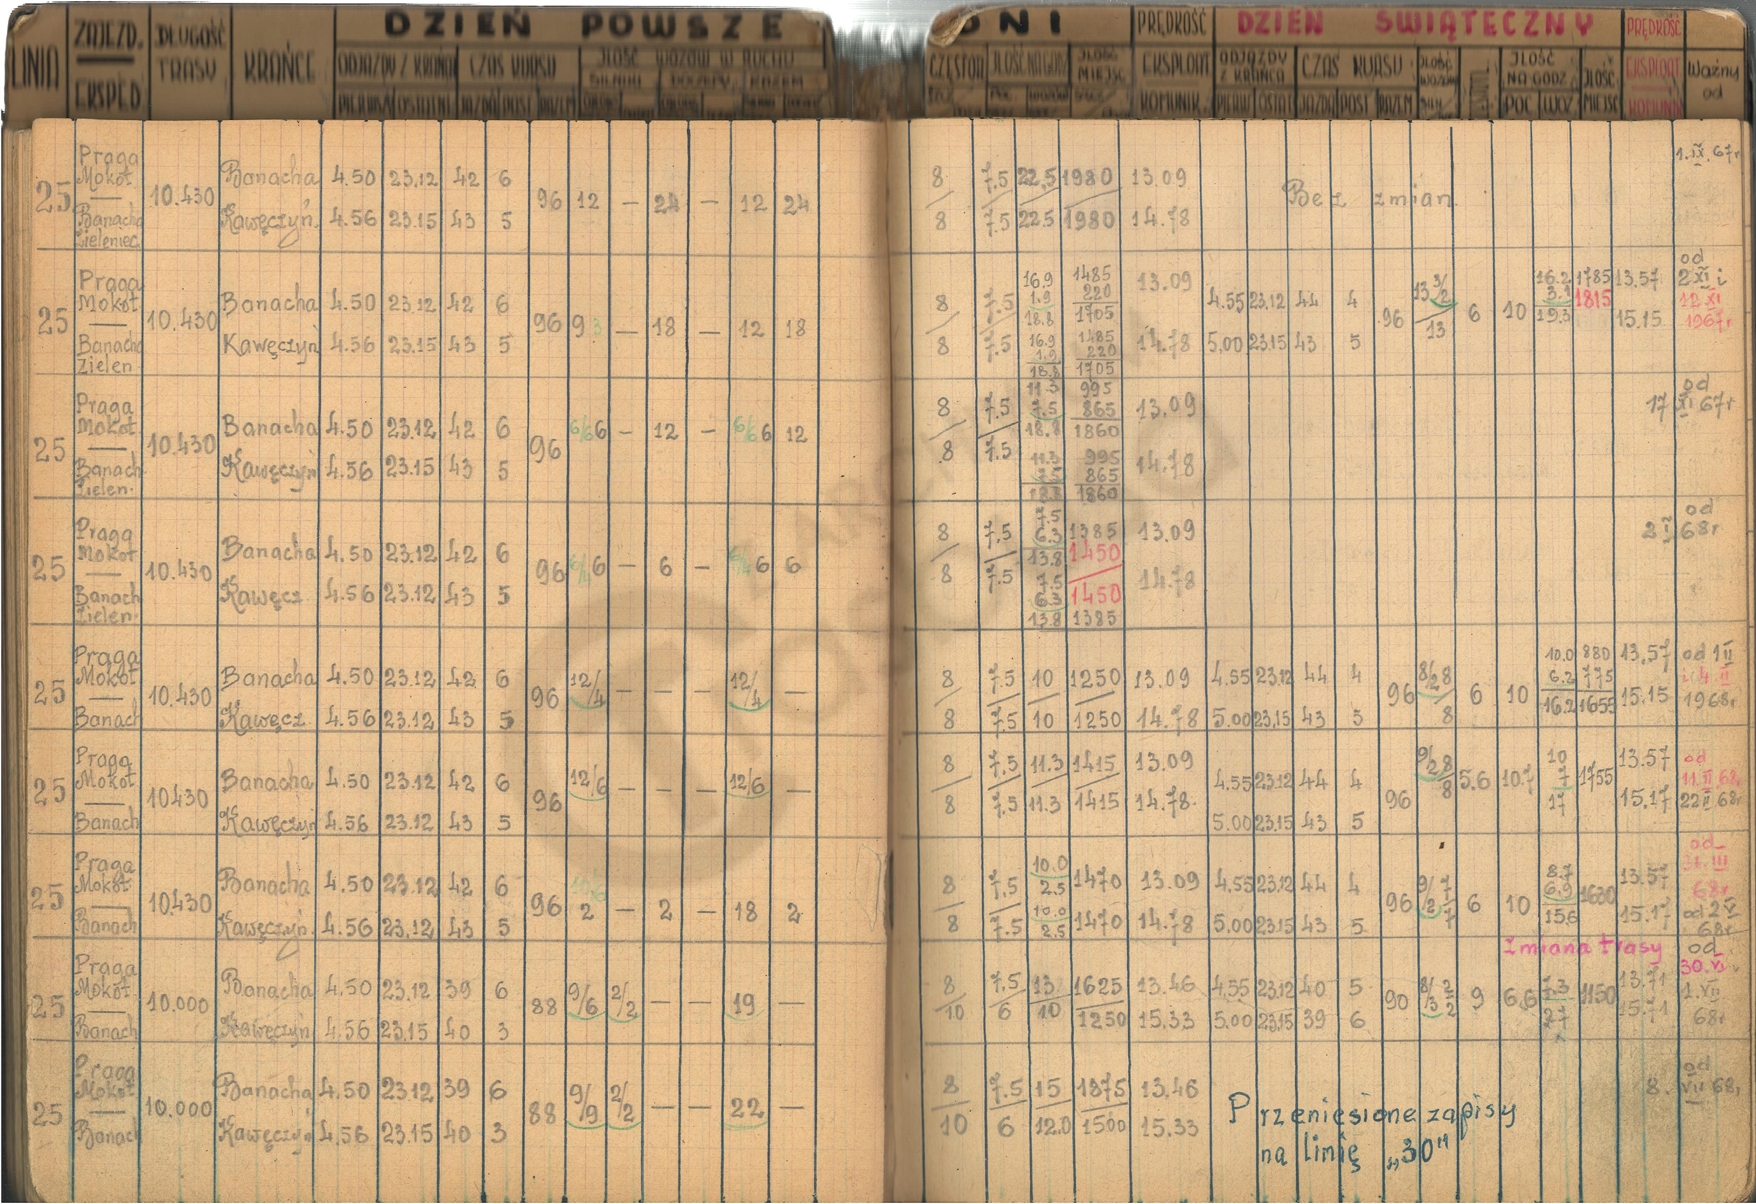 DZIEŃ POWSZEDNI
DZIEŃ ŚWIĄTECZNY
LINIA
ZAJEZD. EKSPED.
DŁUGOŚĆ TRASY
KRAŃCE
ODJAZDY Z KRAŃCA
CZAS KURSU
ILOŚĆ WOZÓW W RUCHU
PRĘDKOŚĆ EKSPLOAT. KOMUNIK.
ODJAZDY Z KRAŃCA
CZAS KURSU
ILOŚĆ NA GODZ.
PRĘDKOŚĆ EKSPLOAT KOMUNI
Ważny od
1.IX.67r
25 Praga Mokot — Banacha Zieleniec 10.430
Banacha 4.50 23.12 42 6 96 12 — 24 — 12 24 8 7.5 22,5 1980 13.09
Kawęczyń. 4.56 23.15 43 5 8 7.5 22.5 1980 14.78
Bez zmian
25 Praga Mokot — Banacha Zielen 10.430
Banacha 4.50 23.12 42 6 96 9 3 — 18 — 12 18 8 7.5 16.9 1.9 18.8 1485 220 1705 13.09 4.55 23.12 44 4 96 13 3/2 13 6 10 16.2 3.1 19.3 1785 1815 13.57
Kawęczyń 4.56 23.15 43 5 8 7.5 16.9 1.9 18.8 1485 220 1705 14.78 5.00 23.15 43 5 15.15
od 2 XI i 12 XI 1967r
25 Praga Mokot — Banach Zielen. 10.430
Banacha 4.50 23.12 42 6 96 6/6 6 — 12 — 6/6 6 12 8 7.5 11.3 7.5 18.8 995 865 1860 13.09
Kawęczyń 4.56 23.15 43 5 8 7.5 11.3 7.5 18.8 995 865 1860 14.78
od 17 XI 67r
25 Praga Mokot — Banach Zielen. 10.430
Banacha 4.50 23.12 42 6 96 6 — 6 — 6 6 8 7.5 7.5 6.3 13.8 1385 1450 13.09
Kawęcz 4.56 23.12 43 5 8 7.5 7.5 6.3 13.8 1450 1385 14.78
od 2 I 68r
25 Praga Mokot — Banach 10.430
Banacha 4.50 23.12 42 6 96 12/4 — — — 12/4 — 8 7.5 10 1250 13.09 4.55 23.12 44 4 96 8/2 8 8 6 10 10.0 6.2 16.2 880 775 1655 13.57
Kawęcz 4.56 23.12 43 5 8 7.5 10 1250 14.78 5.00 23.15 43 5 15.15
od 1 II i 4.II 1968r
25 Praga Mokot — Banach 10430
Banacha 4.50 23.12 42 6 96 12/6 — — — 12/6 — 8 7.5 11.3 1415 13.09 4.55 23.12 44 4 96 9/2 8 8 5.6 10.7 10 7 17 1755 13.57
Kawęczyń 4.56 23.12 43 5 8 7.5 11.3 1415 14.78. 5.00 23.15 43 5 15.17
od 11.II 68r 22 II 68r
25 Praga Mokot — Banach 10.430
Banacha 4.50 23.12 42 6 96 2 — 2 — 18 2 8 7.5 10.0 2.5 1470 13.09 4.55 23.12 44 4 96 9/2 7 7 6 10 8.7 6.9 15.6 1630 13.57
Kawęczyń. 4.56 23.12 43 5 8 7.5 10.0 2.5 1470 14.78 5.00 23.15 43 5 15.17
od 31.III 68r od 2 V 68r
Zmiana trasy
25 Praga Mokot — Banach 10.000
Banacha 4.50 23.12 39 6 88 9/6 2/2 — — 19 — 8 7.5 13 1625 13.46 4.55 23.12 40 5 90 8/3 2 2 9 6.6 1150 13.71
Kawęczyń 4.56 23.15 40 3 10 6 10 1250 15.33 5.00 23.15 39 6 15.71
od 30.VI 1.VII 68r
25 Praga Mokot — Banach 10.000
Banacha 4.50 23.12 39 6 88 9/9 2/2 — — 22 — 8 7.5 15 1875 13.46
Kawęczyń 4.56 23.15 40 3 10 6 12.0 1500 15.33
od 8. VII 68r
Przeniesione zapisy
na linię „30"